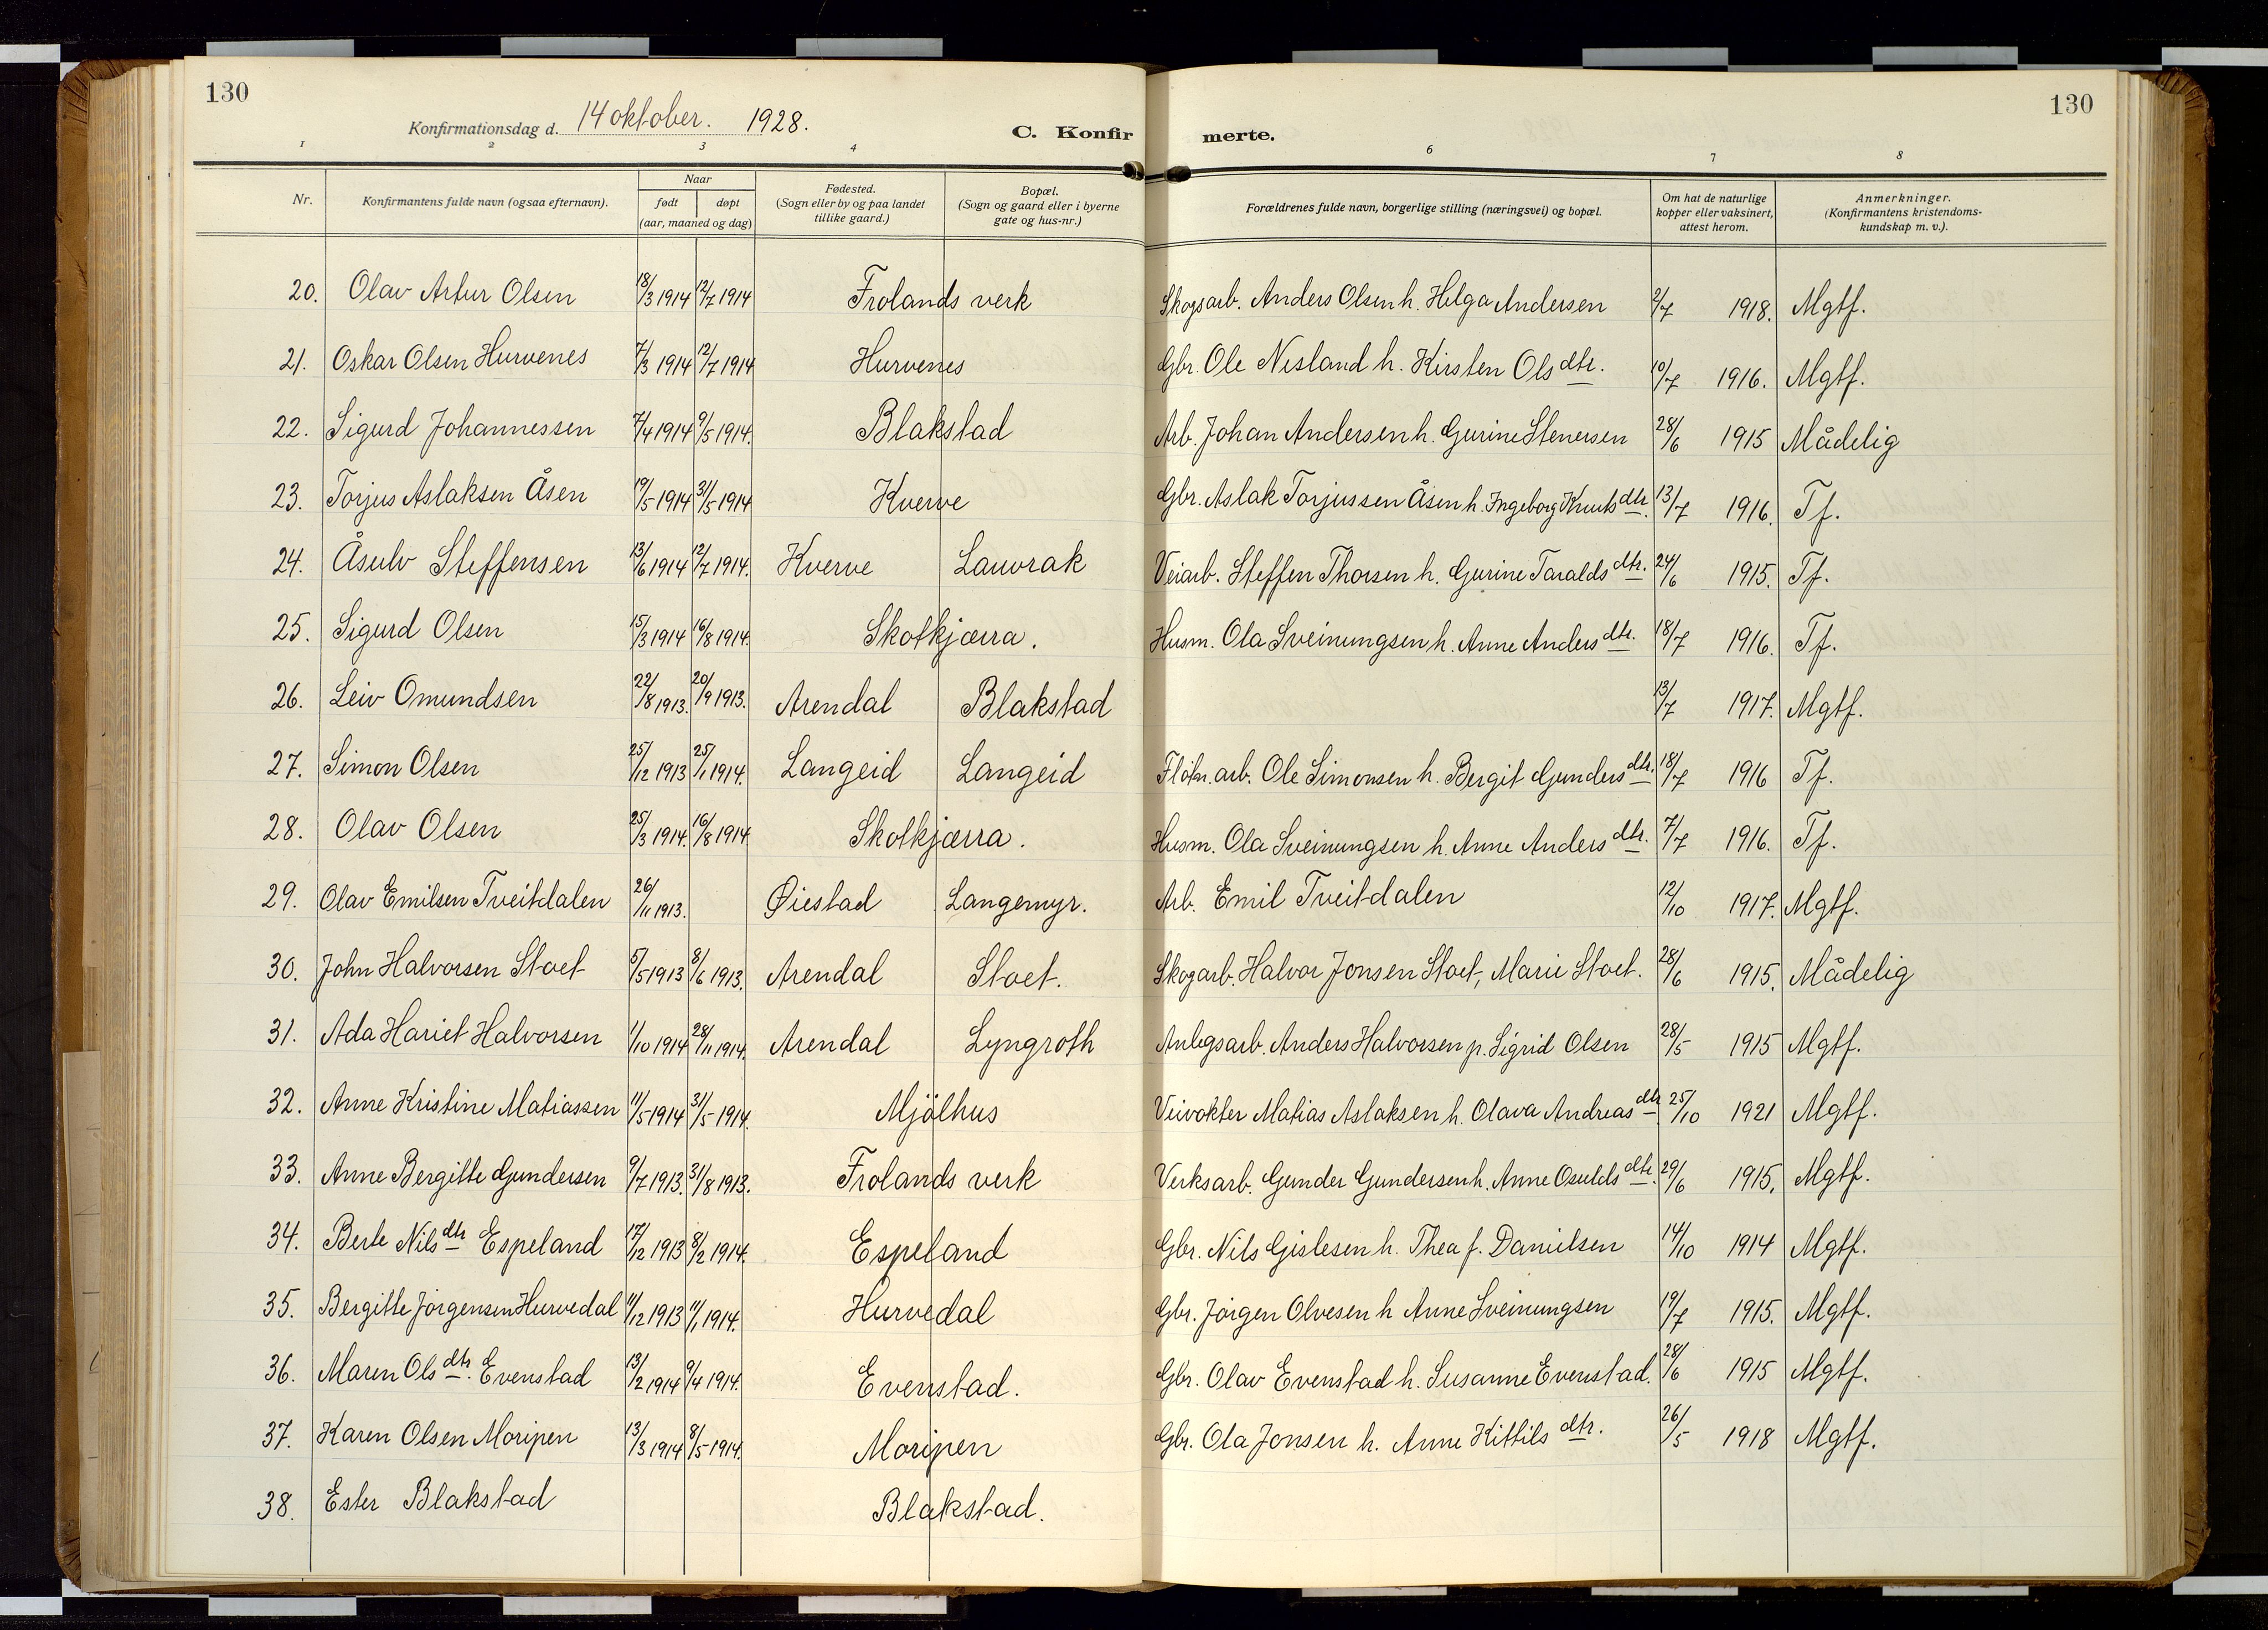 130
130
Konfirmationsdag d. 14 oktober. 1928.
C. Konfir merte.
1 2 3 4 6 7 8
Nr.
Konfirmantens fulde navn (ogsaa efternavn).
Naar
født døpt
(aar, maaned og dag)
Fødested.
(Sogn eller by og paa landet
tillike gaard.)
Bopæl.
(Sogn og gaard eller i byerne
gate og hus-nr.)
Forældrenes fulde navn, borgerlige stilling (næringsvei) og bopæl.
Om hat de naturlige
kopper eller vaksinert,
attest herom.
Anmerkninger.
(Konfirmantens kristendoms-
kundskap m. v.).
20. Olav Artur Olsen 18/3 1914 12/7 1914 Frolands verk Skogsarb. Anders Olsen h. Helga Andersen 2/7 1918. Mgtf.
21. Oskar Olsen Hurvenes 7/3 1914 12/7 1914 Hurvenes Gbr. Ole Nesland h. Kirsten Olsdtr. 10/7 1916. Mgtf.
22. Sigurd Johannessen 7/4 1914 9/5 1914. Blakstad Arb. Johan Andersen h. Gurine Stenersen 28/6 1915 Mådelig
23. Torjus Aslaksen Åsen 19/5 1914 31/5 1914 Kverve Gbr. Aslak Torjussen Åsen h. Ingeborg Knutsdtr. 13/7 1916. Tf.
24. Åsulv Steffensen 13/6 1914 12/7 1914. Kverve Lauvrak Veiarb. Steffen Thorsen h. Gurine Taraldsdtr. 24/6 1915. Tf.
25. Sigurd Olsen 15/3 1914 16/8 1914. Skotkjærra. Husm. Ola Sveinungsen h. Anne Andersdtr. 18/7 1916. Tf.
26. Leiv Omundsen 22/8 1913. 20/9 1913. Arendal Blakstad 13/7 1917. Mgtf.
27. Simon Olsen 25/12 1913 25/1 1914. Langeid Langeid Flötn. arb. Ole Simonsen h. Bergit Gundersdtr. 18/7 1916 Tf.
28. Olav Olsen 25/3 1914. 16/8 1914. Skotkjærra. Husm. Ola Sveinungsen h. Anne Andersdtr. 7/7 1916. Tf.
29. Olav Emilsen Tveitdalen 26/11 1913. Øiestad Langemyr. Arb. Emil Tveitdalen 12/10 1917. Mgtf.
30. John Halvorsen Stoet 5/5 1913 8/6 1913. Arendal Stoet. Skogarb. Halvor Jonsen Stoet, Marie Stoet. 28/6 1915. Mådelig
31. Ada Hariet Halvorsen 1/10 1914 28/11 1914. Arendal Lyngroth Anlegsarb. Anders Halvorsen p. Sigrid Olsen 28/5 1915 Mgtf.
32. Anne Kristine Matiassen 11/5 1914 31/5 1914. Mjölhus Veivokter Matias Aslaksen h. Olava Andreasdtr. 25/10 1921 Mgtf.
33. Anne Bergitte Gundersen 9/7 1913. 31/8 1913. Frolands verk Verksarb. Gunder Gundersen h. Anne Osuldsdtr. 29/6 1915. Mgtf.
34. Berte Nilsdtr Espeland 17/12 1913 8/2 1914. Espeland Gbr. Nils Gislesen h. Thea f. Danielsen 14/10 1914 Mgtf.
35. Bergitte Jörgensen Hurvedal 11/12 1913 11/1 1914. Hurvedal Gbr. Jörgen Olvesen h Anne Sveinungsen 19/7 1915. Mgtf.
36. Maren Olsdtr. Evenstad 13/2 1914 9/4 1914. Evenstad. Gbr. Olav Evenstad h. Susanne Evenstad. 28/6 1915 Mgtf.
37. Karen Olsen Moripen 13/3 1914 8/5 1914. Moripen Gbr. Ola Jonsen h. Anne Kittilsdtr. 26/5 1918 Mgtf.
38. Ester Blakstad Blakstad.